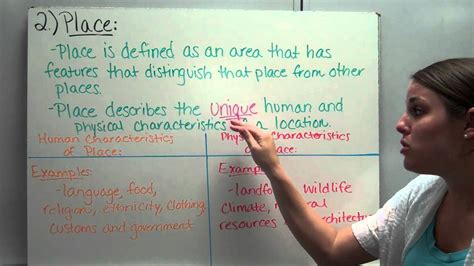 2.) Place:
-Place is defined as an area that has
features that distinguish that place from other
places.
-Place describes the unique human and
physical characteristics a location.
Human Characteristics
of Place:
Characteristics
Place:
Examples:
-language, food,
religion, ethnicity, clothing,
customs and government
Examples
-landfor wildlife
Climate,
resources